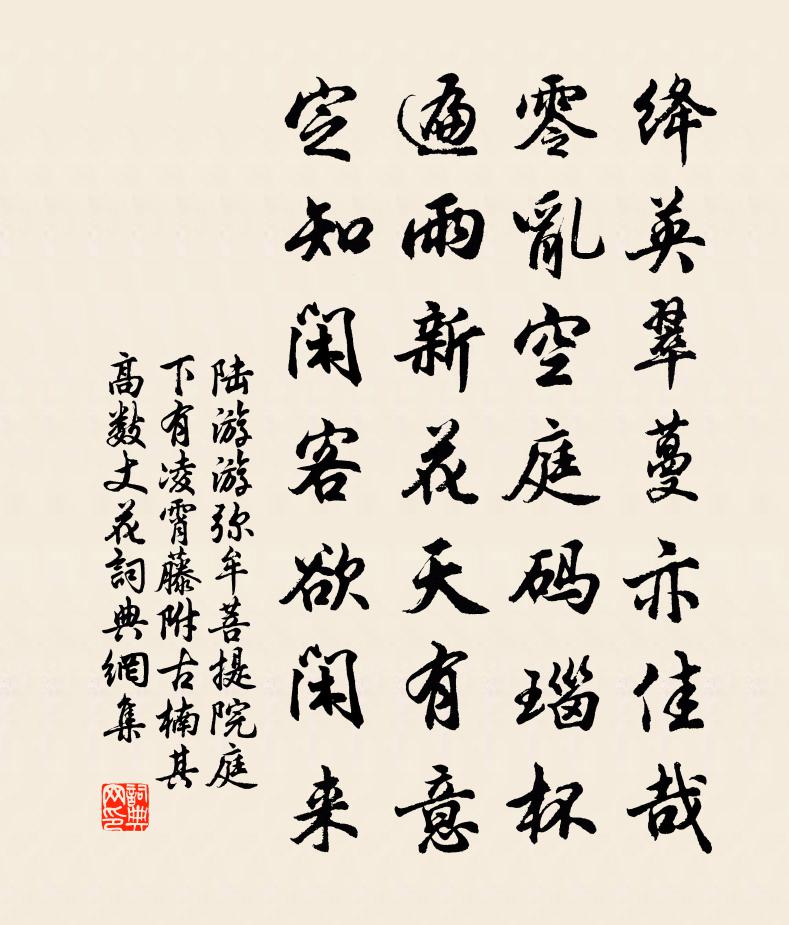 绛英翠蔓亦佳哉
零亂空庭码瑙杯
遍雨新花天有意
定知闲客欲闲来
陆游游弥牟菩提院庭
下有凌霄藤附古楠其
高数丈花詞典網集
詞典网印